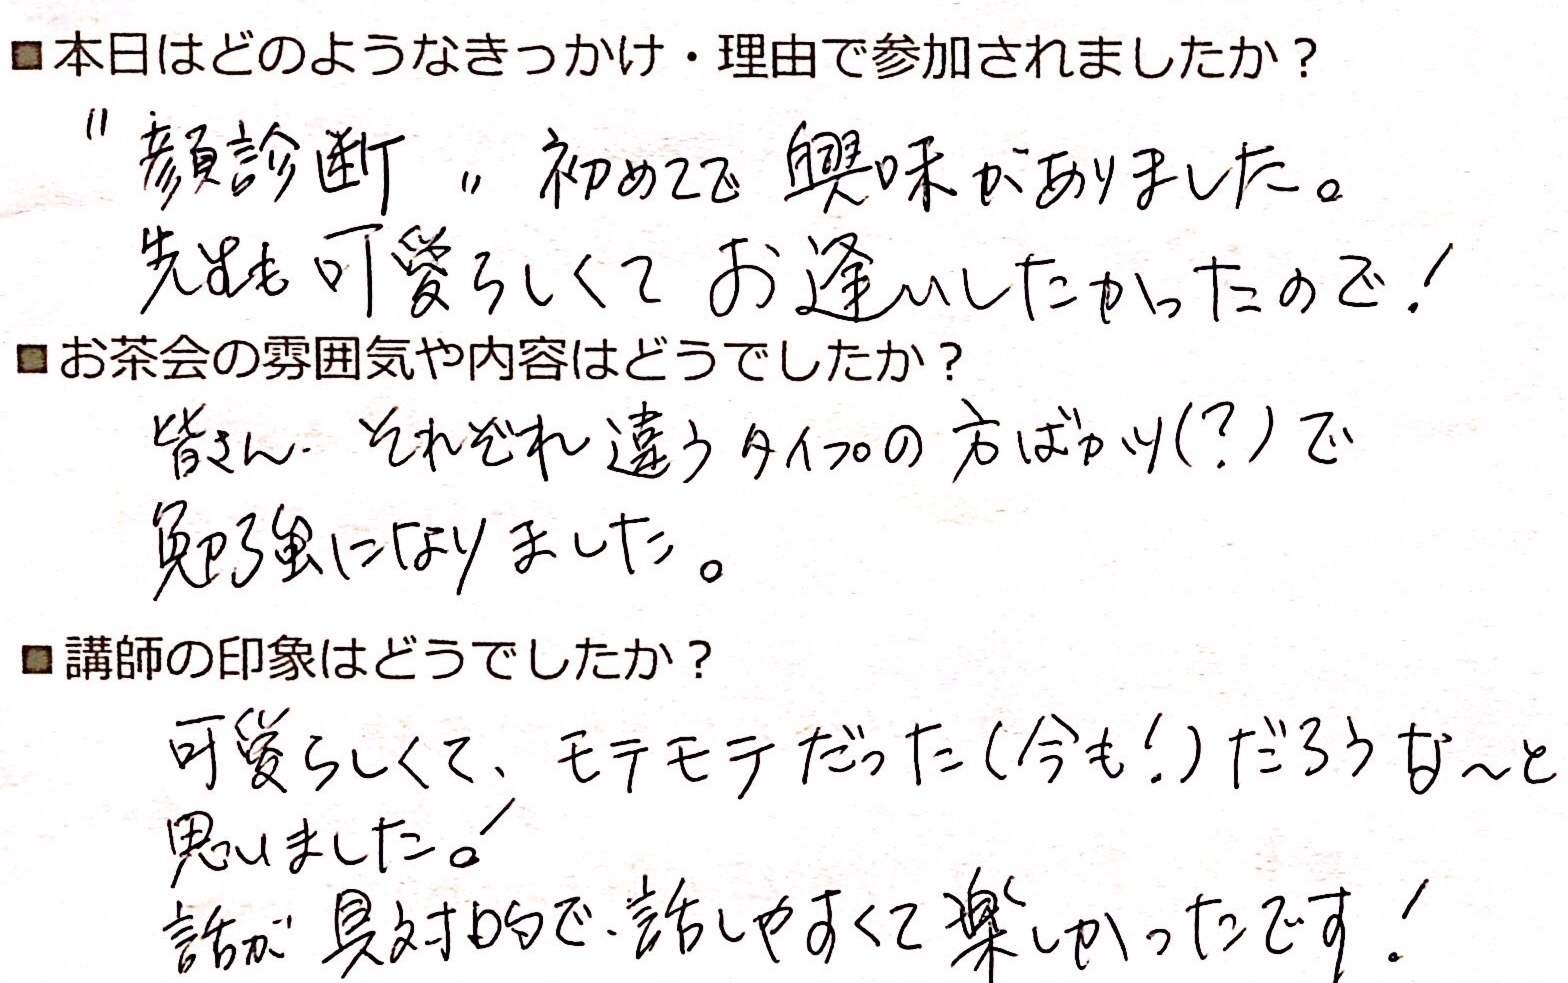 ■本日はどのようなきっかけ・理由で参加されましたか？
"顔診断" 初めてで 興味がありました。
先生も可愛らしくて お逢いしたかったので！
■お茶会の雰囲気や内容はどうでしたか？
皆さん、それぞれ違うタイプの方ばかり(?)で
勉強になりました。
■講師の印象はどうでしたか？
可愛らしくて、モテモテだった(今も！)だろうな〜と
思いました。！
話が具対的で、話しやすくて楽しかったです！